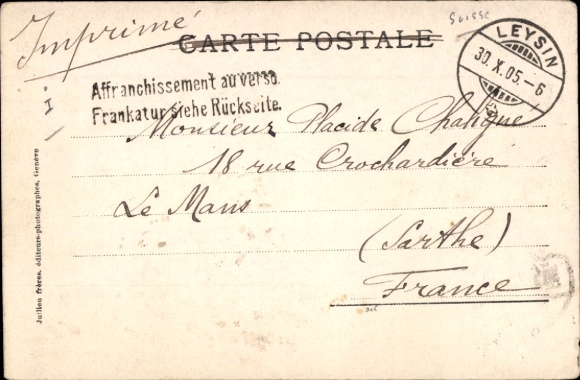 Imprimé
CARTE POSTALE
Suisse
LEYSIN
30.X.05.-6
Affranchissement au verso.
Frankatur siehe Rückseite.
I
Monsieur Placide
18 rue Crochardière
Le Mans
(Sarthe)
France
Jullien frères, éditeurs-photographes, Genève